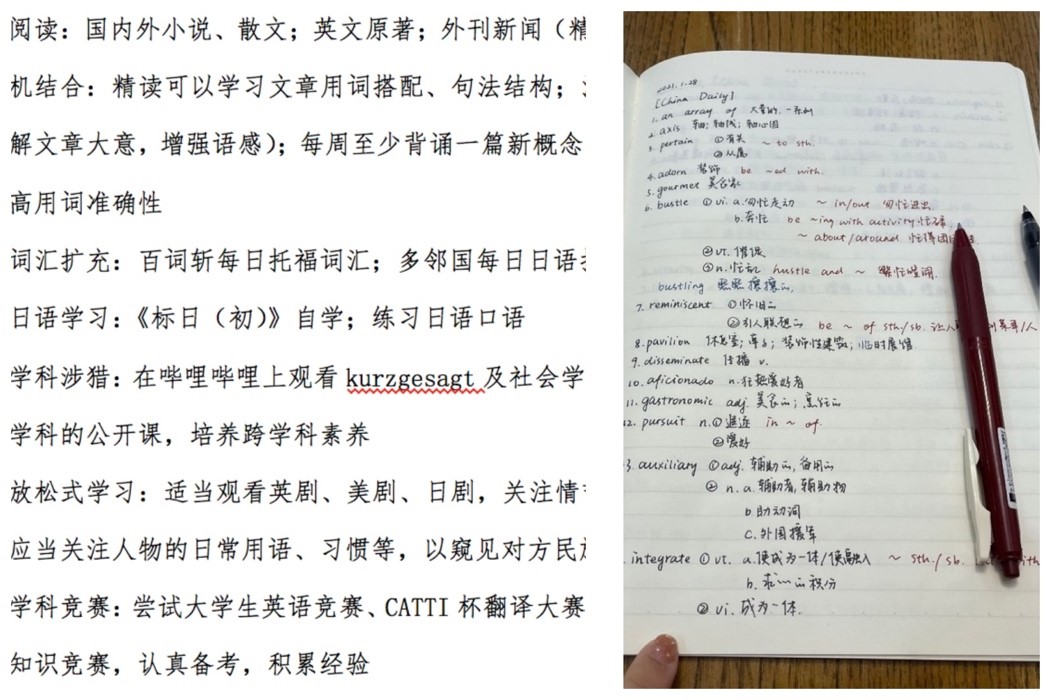 阅读：国内外小说、散文；英文原著；外刊新闻（精
机结合：精读可以学习文章用词搭配、句法结构；
解文章大意，增强语感）；每周至少背诵一篇新概念
高用词准确性
词汇扩充：百词斩每日托福词汇；多邻国每日日语
日语学习：《标日（初）》自学；练习日语口语
学科涉猎：在哔哩哔哩上观看 kurzgesagt 及社会学
学科的公开课，培养跨学科素养
放松式学习：适当观看英剧、美剧、日剧，关注情
应当关注人物的日常用语、习惯等，以窥见对方民
学科竞赛：尝试大学生英语竞赛、CATTI 杯翻译大赛
知识竞赛，认真备考，积累经验
2021.1.28
[China Daily]
1. an array of 大量的，一系列
2. axis 轴；轴线；轴心国
3. pertain ①有关 ~ to sth.
②从属
4. adorn 装饰 be ~ed with.
5. gourmet 美食家
6. bustle ①vi. a.匆忙走动 ~ in/out 匆忙进出
b.奔忙 be ~ing with activity 忙碌
~ about/around 忙得团团
②vt. 催促
③n.忙乱 hustle and ~ 繁忙喧闹
bustling 熙熙攘攘的
7. reminiscent ①怀旧的
②引人联想的 be ~ of sth/sb.
8. pavilion 休息室；亭子；装饰性建筑；临时展馆
9. disseminate 传播 v.
10. aficionado n.狂热爱好者
11. gastronomic adj. 美食的；烹饪的
12. pursuit n.①追逐 in ~ of.
②爱好
3. auxiliary ①adj. 辅助的，备用的
② n. a.辅助者，辅助物
b.助动词
c.外国援军
. integrate ①vt. a.使成为一体/使融入 ~ sth./sb. with
b. 求…的积分
② vi. 成为一体.